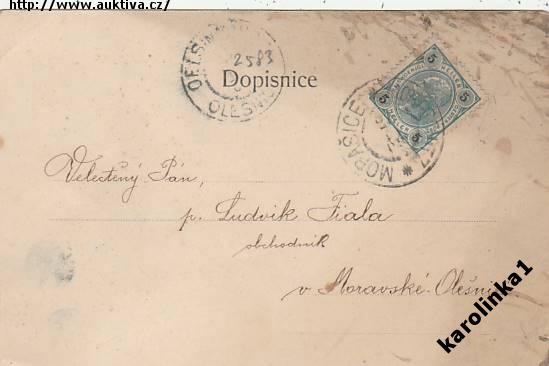 http://www.auktiva.cz/
OELS
2583
OLEŠN
Dopisnice
5 HELLER 5
MORAŠICE
Velectěný Pán,
p. Ludvik Fiala
obchodník
v Moravské Olešni
karolinka1